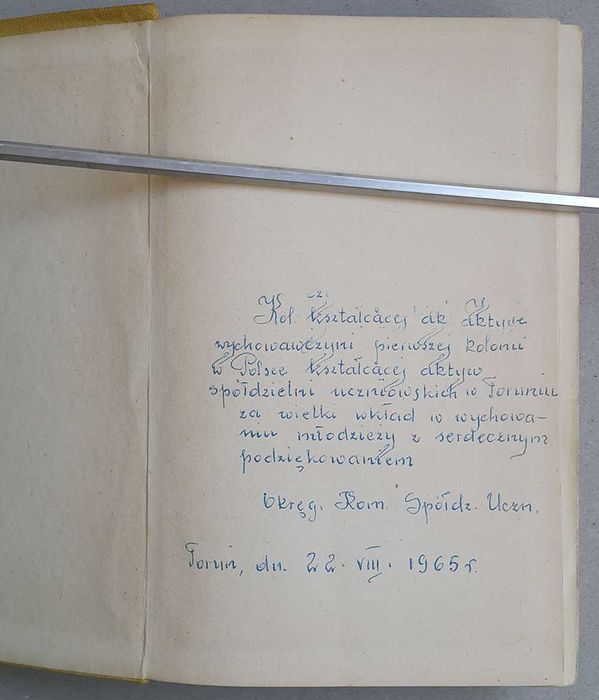 Kol. kształcącej aktyw
wychowawczyni pierwszej kolonii
w Polsce kształcącej aktyw
spółdzielni uczniowskich w Toruniu
za wielki wkład w wychowa-
niu młodzieży z serdecznym
podziękowaniem
Okręg. Kom. Spółdz. Uczn.
Toruń, dn. 22. VIII. 1965 r.